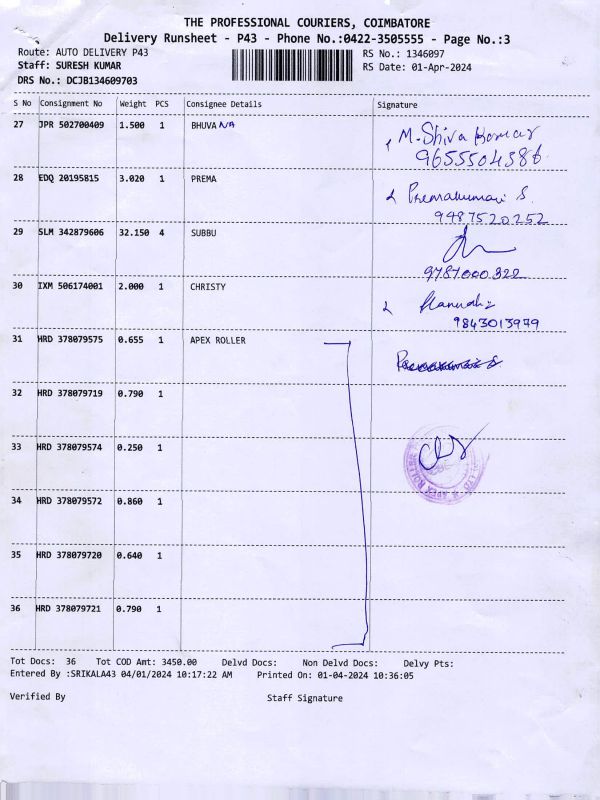 THE PROFESSIONAL COURIERS, COIMBATORE
Delivery Runsheet - P43 - Phone No.:0422-3505555 - Page No.:3
Route: AUTO DELIVERY P43
Staff: SURESH KUMAR
DRS No.: DCJB134609703
RS No.: 1346097
RS Date: 01-Apr-2024
S No Consignment No Weight PCS Consignee Details Signature
27 JPR 502700409 1.500 1 BHUVANA M. Shiva Kumar
9655504386
28 EDQ 20195815 3.020 1 PREMA Premakumari S.
9487520252
29 SLM 342879606 32.150 4 SUBBU
9787000322
30 IXM 506174001 2.000 1 CHRISTY
9843013979
31 HRD 378079575 0.655 1 APEX ROLLER
32 HRD 378079719 0.790 1
33 HRD 378079574 0.250 1
34 HRD 378079572 0.860 1
35 HRD 378079720 0.640 1
36 HRD 378079721 0.790 1
Tot Docs: 36 Tot COD Amt: 3450.00 Delvd Docs: Non Delvd Docs: Delvy Pts:
Entered By :SRIKALA43 04/01/2024 10:17:22 AM Printed On: 01-04-2024 10:36:05
Verified By Staff Signature